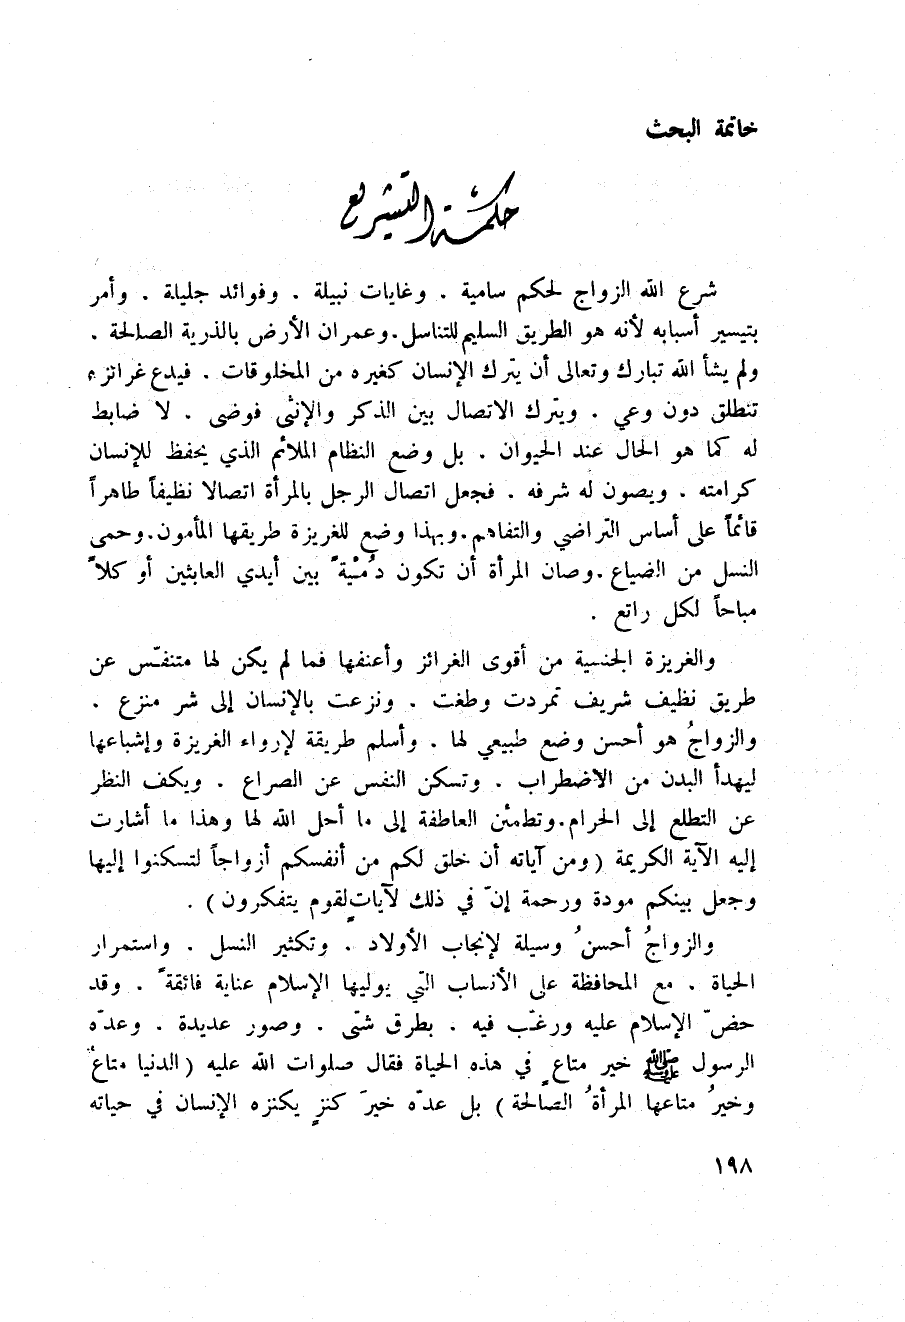 خاتمة البحث
حكمة التشريع
شرع الله الزواج لحكم سامية . وغايات نبيلة . وفوائد جليلة . وأمر
بتيسير أسبابه لأنه هو الطريق السليم للتناسل.وعمران الأرض بالذرية الصالحة .
ولم يشأ الله تبارك وتعالى أن يترك الإنسان كغيره من المخلوقات . فيدع غرائزه
تنطلق دون وعي . ويترك الاتصال بين الذكر والإنثى فوضى . لا ضابط
له كما هو الحال عند الحيوان . بل وضع النظام الملائم الذي يحفظ للإنسان
كرامته . ويصون له شرفه . فجعل اتصال الرجل بالمرأة اتصالا نظيفاً طاهراً
قائماً على أساس التراضي والتفاهم.وبهذا وضع للغريزة طريقها المأمون.وحمى
النسل من الضياع.وصان المرأة أن تكون دُمْيةً بين أيدي العابثين أو كلاً
مباحاً لكل راتع .
والغريزة الجنسية من أقوى الغرائز وأعنفها فما لم يكن لها متنفّس عن
طريق نظيف شريف تمردت وطغت . ونزعت بالإنسان إلى شر منزع .
والزواجُ هو أحسن وضع طبيعي لها . وأسلم طريقة لإرواء الغريزة وإشباعها
ليهدأ البدن من الاضطراب . وتسكن النفس عن الصراع . ويكف النظر
عن التطلع إلى الحرام.وتطمئن العاطفة إلى ما أحل الله لها وهذا ما أشارت
إليه الآية الكريمة (ومن آياته أن خلق لكم من أنفسكم أزواجاً لتسكنوا إليها
وجعل بينكم مودة ورحمة إنّ في ذلك لآياتٍ لقوم يتفكرون) .
والزواجُ أحسنُ وسيلة لإنجاب الأولاد . وتكثير النسل . واستمرار
الحياة . مع المحافظة على الأنساب التي يوليها الإسلام عناية فائقةً . وقد
حضّ الإسلام عليه ورغّب فيه . بطرق شتى . وصور عديدة . وعدّه
الرسول ﷺ خير متاعٍ في هذه الحياة فقال صلوات الله عليه (الدنيا متاعٌ
وخيرُ متاعها المرأةُ الصالحة) بل عدّه خيرَ كنزٍ يكنزه الإنسان في حياته
١٩٨